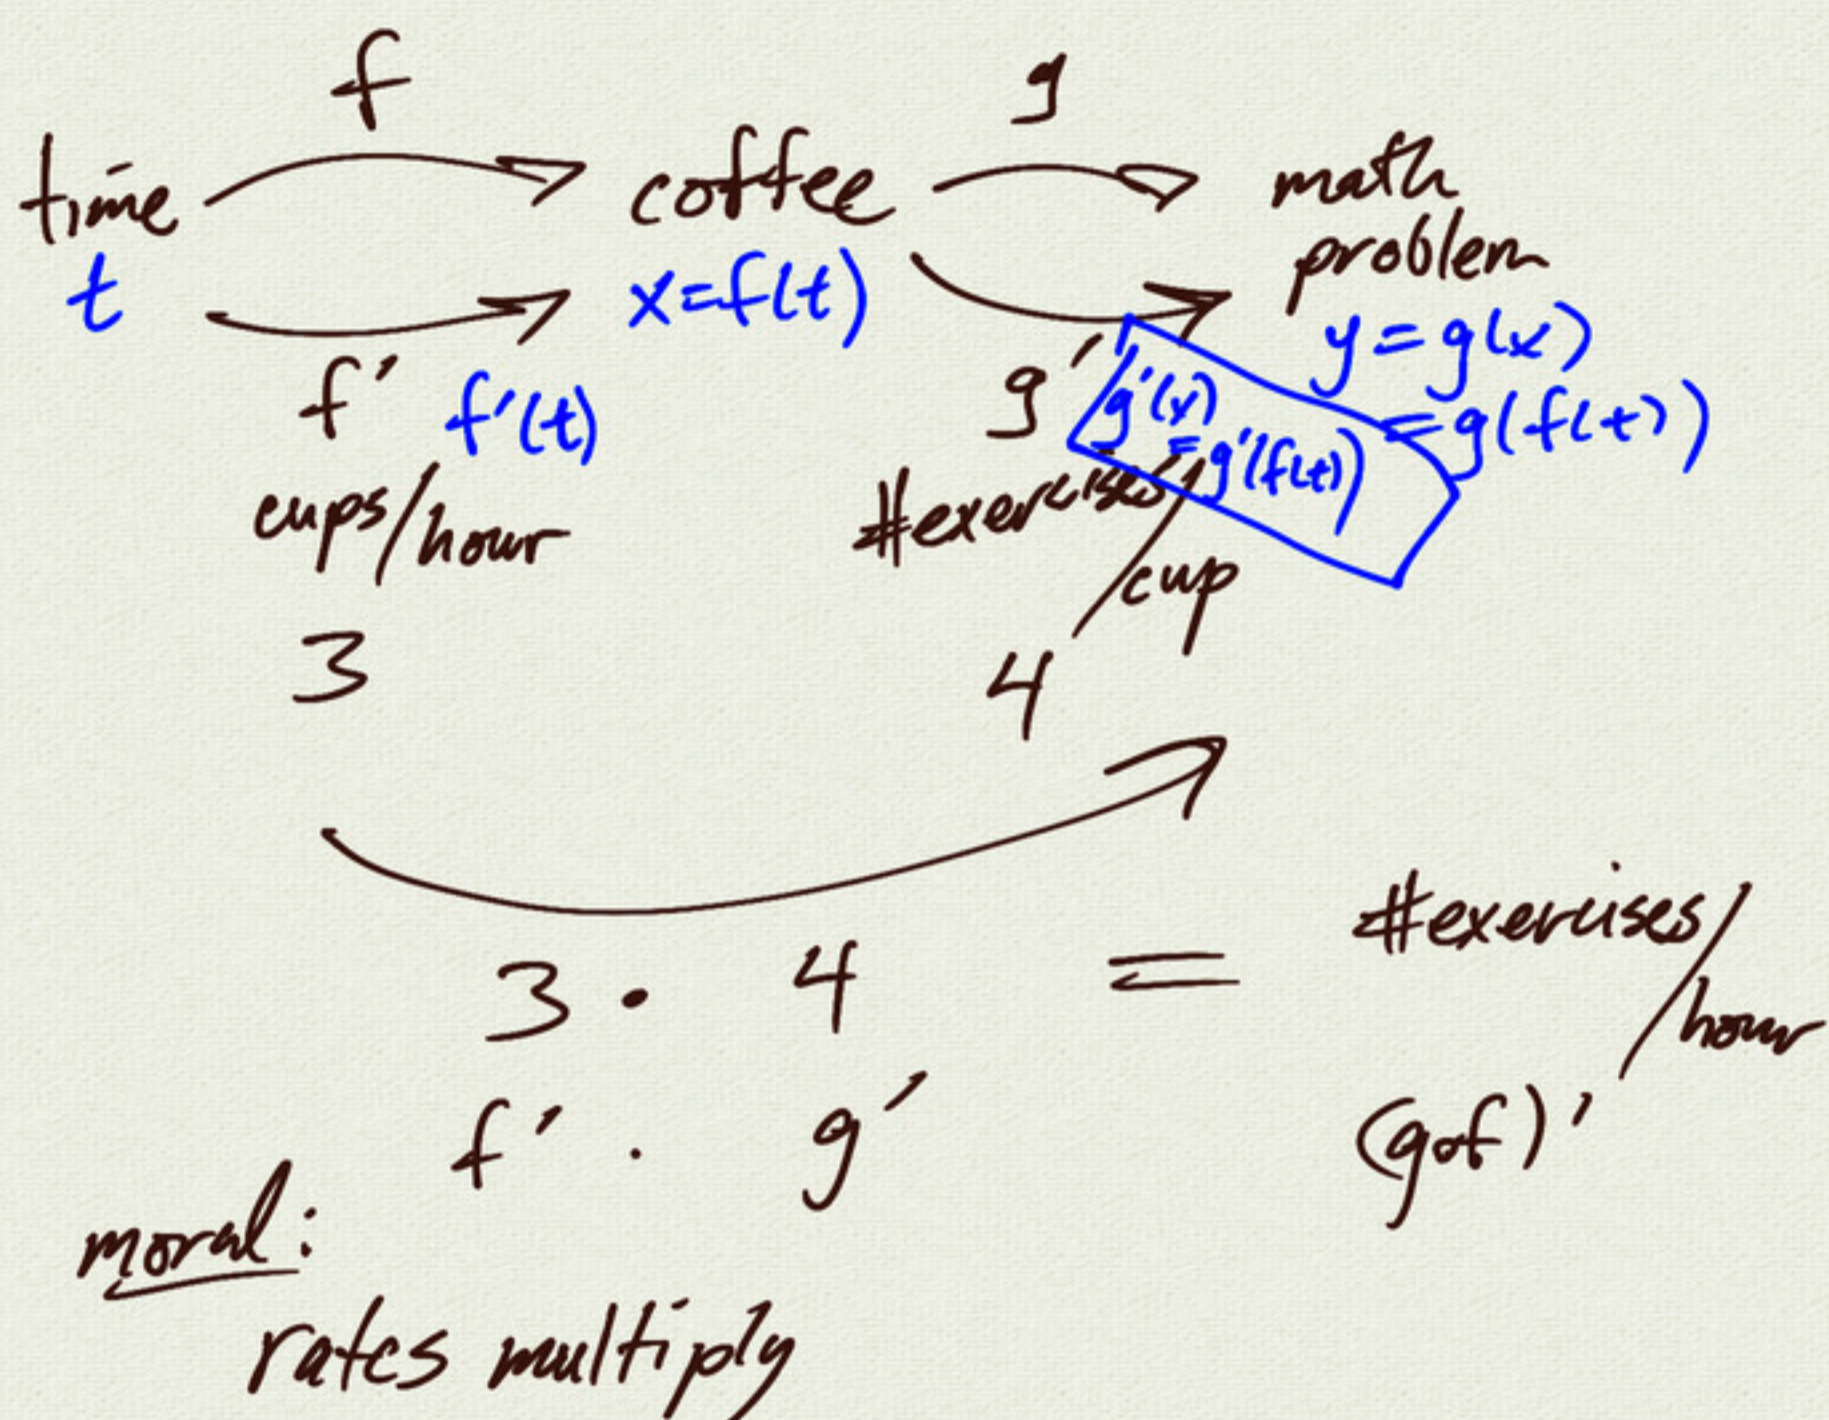 f g
time coffee math
problem
t x=f(t) y=g(x)
=g(f(t))
f' f'(t) g' g'(x)
=g'(f(t))
cups/hour #exercises/cup
3 4
3 · 4 = #exercises/hour
f' · g' (gof)'
moral:
rates multiply